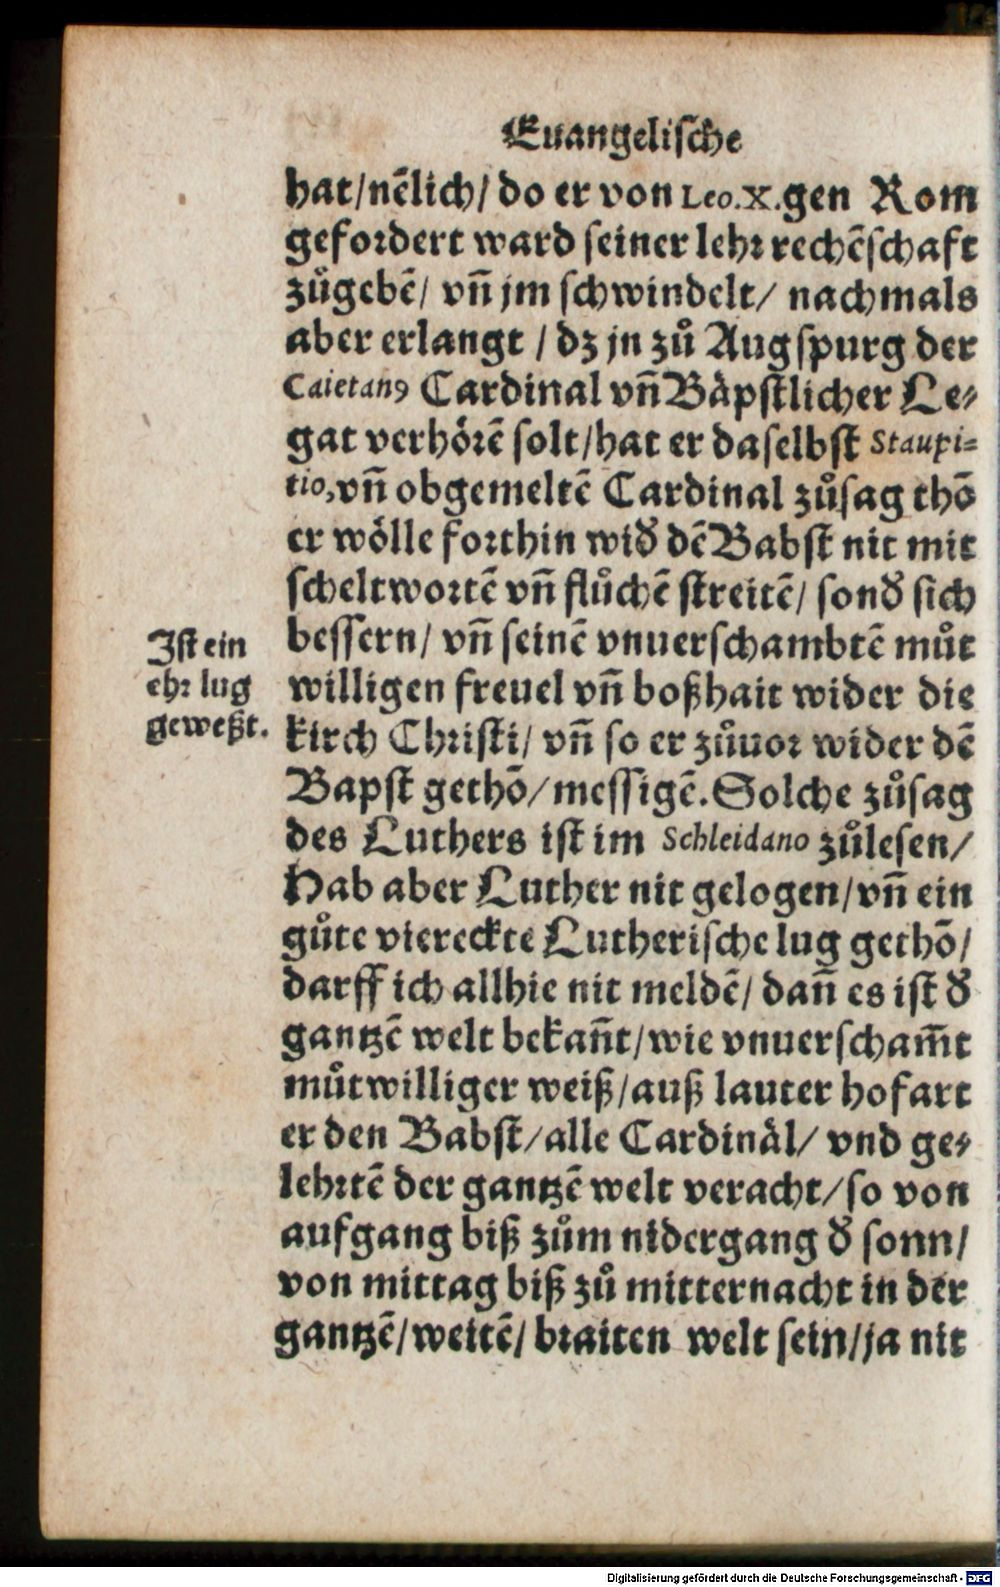 Euangelische
hat/nẽlich/ do er von Leo.X.gen Rom
gefordert ward seiner lehr rechẽschaft
zůgebẽ/ vñ jm schwindelt/ nachmals
aber erlangt / dz jn zů Augspurg der
Caietanꝰ Cardinal vñ Bäpstlicher Le⸗
gat verhörẽ solt/hat er daselbst Staupi⸗
tio,vñ obgemeltẽ Cardinal zůsag thõ
er wölle forthin wid̕ dẽ Babst nit mit
scheltwortẽ vñ flůchẽ streitẽ/ sond̕ sich
bessern/ vñ seinẽ vnuerschambtẽ můt
willigen freuel vñ boßhait wider die
kirch Christi/ vñ so er zůuor wider dẽ
Bapst gethõ/messigẽ.Solche zůsag
des Luthers ist im Schleidano zůlesen/
Hab aber Luther nit gelogen/vñ ein
gůte viereckte Lutherische lug gethõ/
darff ich allhie nit meldẽ/ dañ es ist d̕
gantzẽ welt bekañt/wie vnuerscham̃t
můtwilliger weiß/auß lauter hofart
er den Babst/alle Cardinäl/ vnd ge⸗
lehrtẽ der gantzẽ welt veracht/so von
aufgang biß zům nidergang d̕ sonn/
von mittag biß zů mitternacht in der
gantzẽ/weitẽ/ braiten welt sein/ja nit
Ist ein
ehr lug
geweßt.
Digitalisierung gefördert durch die Deutsche Forschungsgemeinschaft - DFG